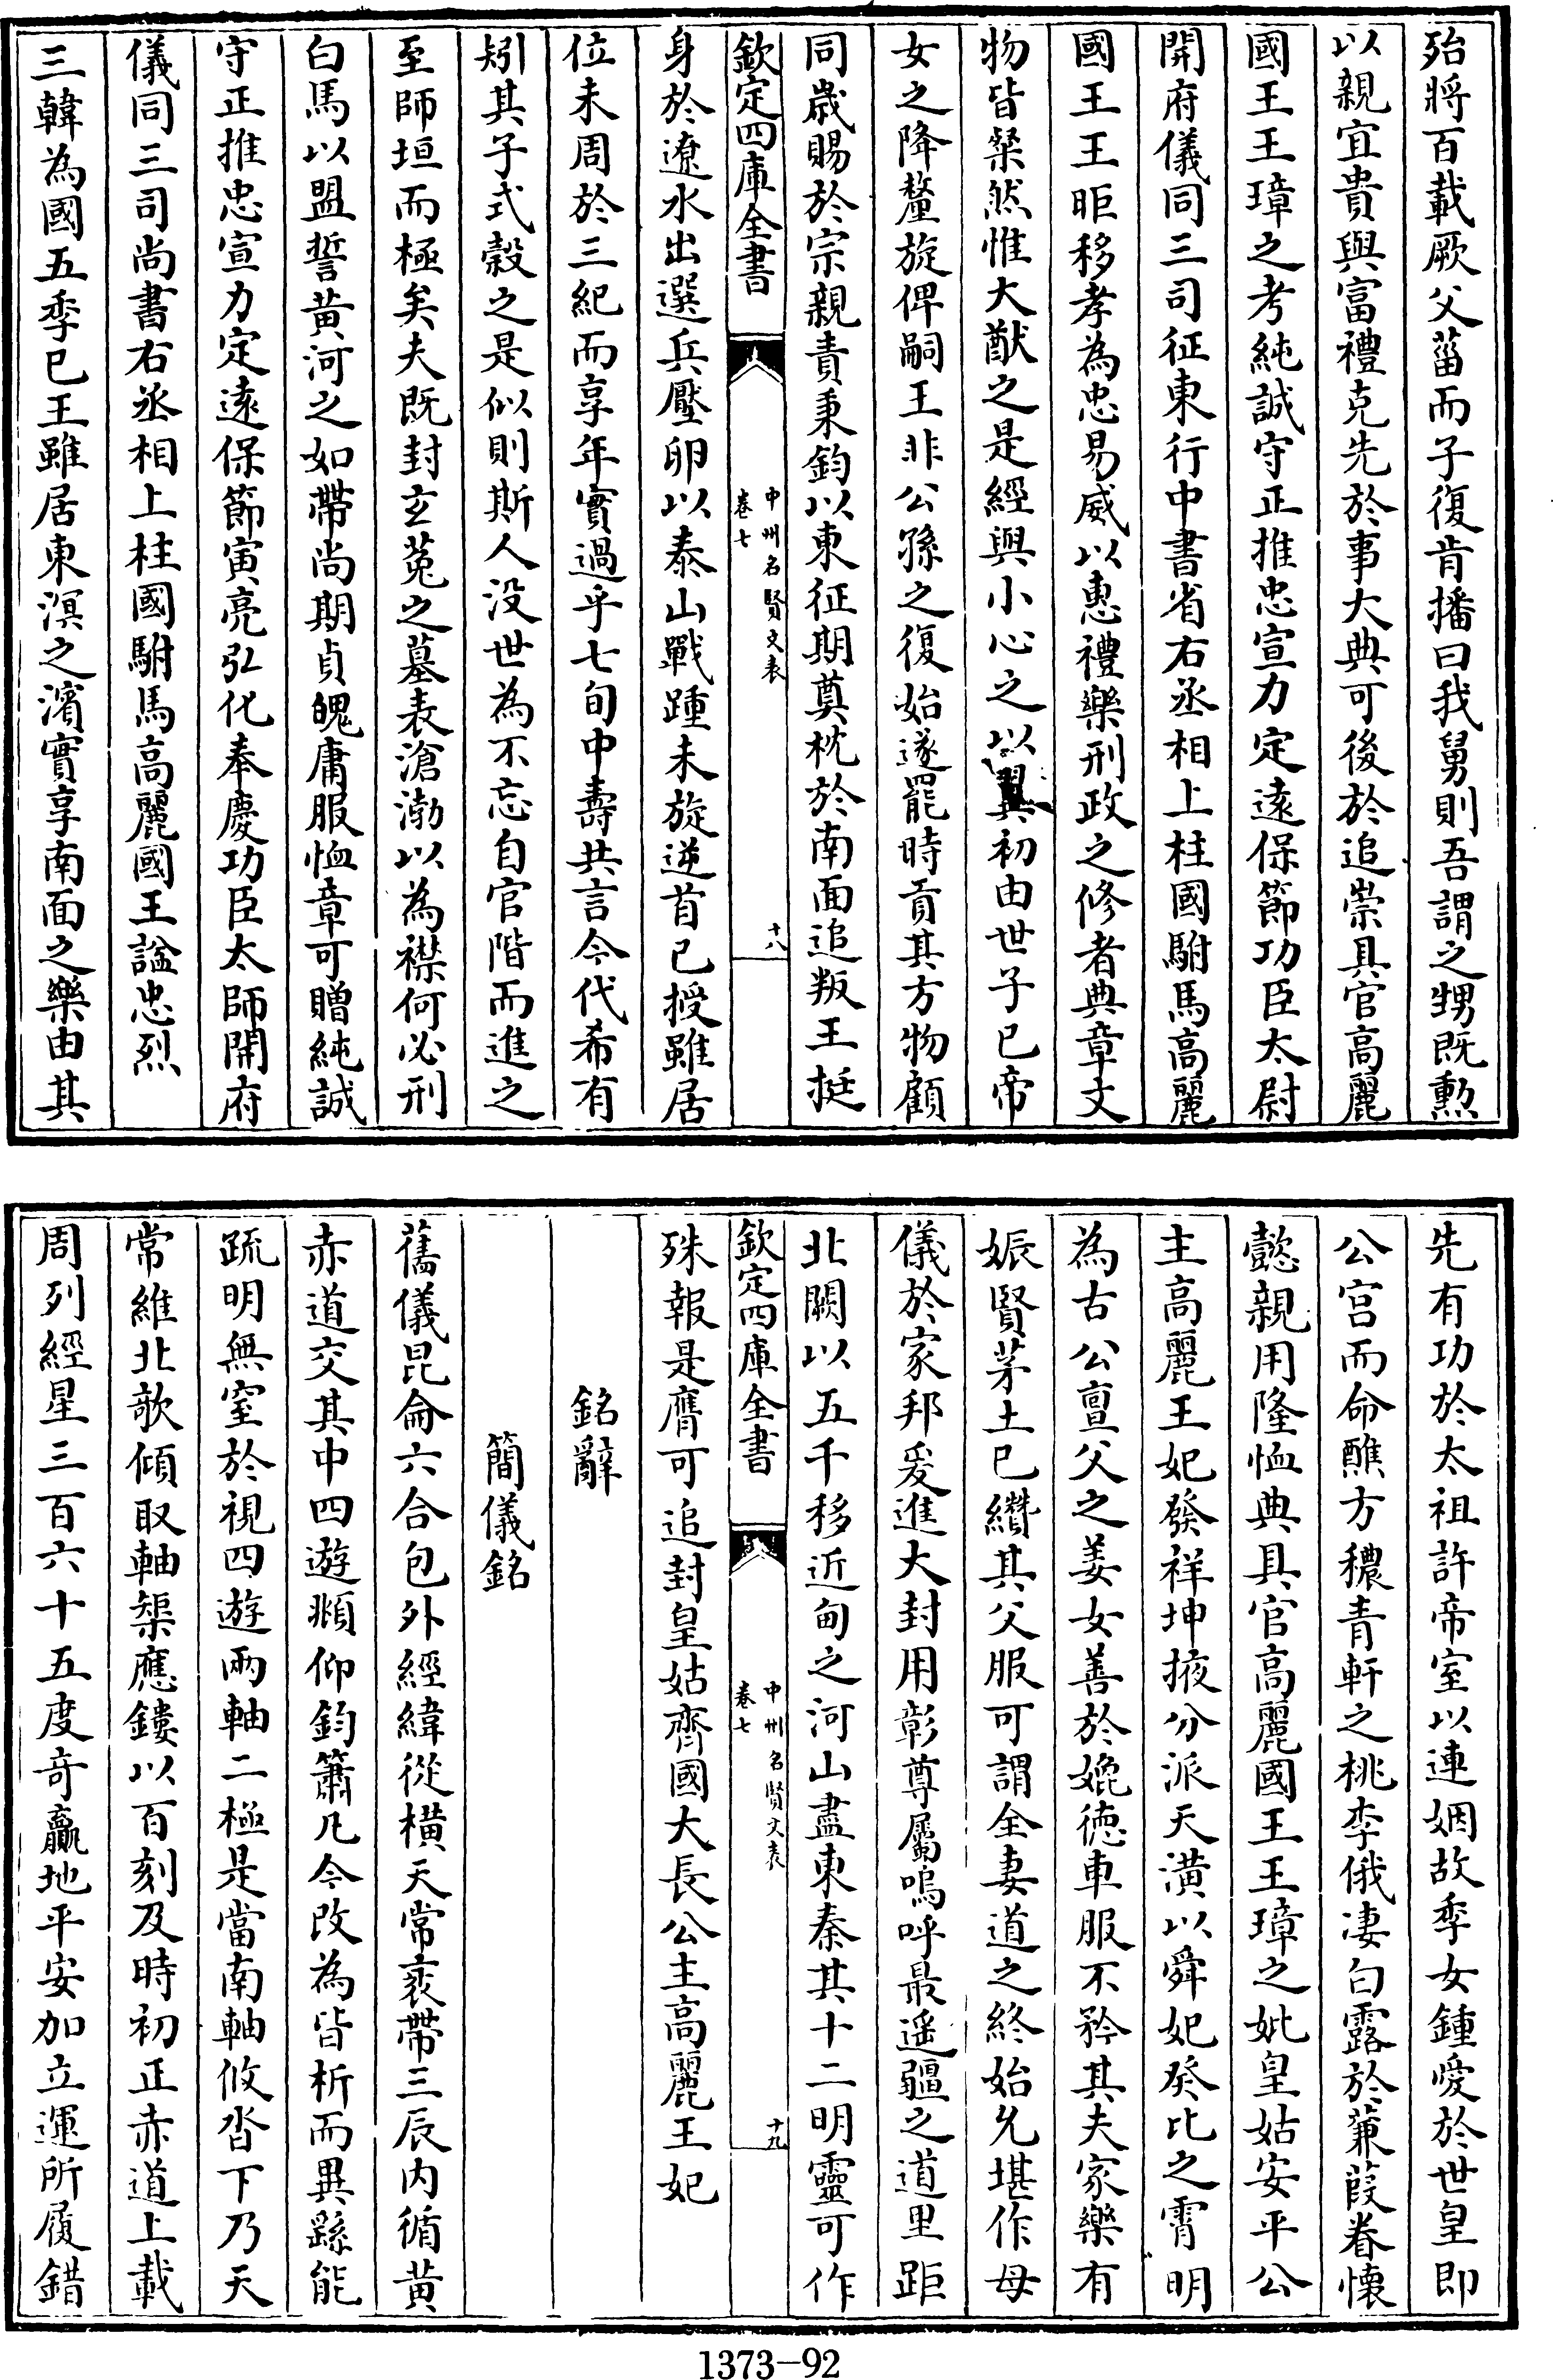 殆將百載厥父菑而子復肯播曰我舅則吾謂之甥既勲
以親宜貴與富禮克先於事大典可後於追崇具官高麗
國王王璋之考純誠守正推忠宣力定逺保節功臣太尉
開府儀同三司征東行中書省右丞相上柱國駙馬高麗
國王王昛移孝為忠易威以惠禮樂刑政之修者典章文
物皆粲然惟大猷之是經與小心之以翼初由世子已帝
女之降釐旋俾嗣王非公孫之復始遂罷時貢其方物顧
同歳賜於宗親責秉鈞以東征期奠枕於南面追叛王挺
欽定四庫全書
中州名賢文表
卷七
十八
身於遼水出選兵壓卵以泰山戰踵未旋逆首已授雖居
位未周於三紀而享年實過乎七旬中壽共言今代希有
矧其子式榖之是似則斯人没世為不忘自官階而進之
至師垣而極矣夫既封玄菟之墓表滄渤以為襟何必刑
白馬以盟誓黄河之如帶尚期貞魄庸服恤章可贈純誠
守正推忠宣力定逺保節寅亮弘化奉慶功臣太師開府
儀同三司尚書右丞相上柱國駙馬高麗國王諡忠烈
三韓為國五季已王雖居東溟之濱實享南面之樂由其
先有功於太祖許帝室以連姻故季女鍾愛於世皇即
公宫而命醮方穠青軒之桃李俄凄白露於蒹葭眷懐
懿親用隆恤典具官高麗國王王璋之妣皇姑安平公
主高麗王妃發祥坤掖分派天潢以舜妃癸比之霄明
為古公亶父之姜女善於娩徳車服不矜其夫家樂有
娠賢茅土已纘其父服可謂全妻道之終始允堪作母
儀於家邦爰進大封用彰尊屬嗚呼最遥疆之道里距
北闕以五千移近甸之河山盡東秦其十二明靈可作
欽定四庫全書
中州名賢文表
卷七
十九
殊報是膺可追封皇姑齊國大長公主高麗王妃
銘辭
簡儀銘
舊儀昆侖六合包外經緯從横天常衺帶三辰内循黄
赤道交其中四遊頫仰鈞簫凡今改為皆析而異繇能
疏明無窒於視四遊兩軸二極是當南軸攸沓下乃天
常維北欹傾取軸榘應鏤以百刻及時初正赤道上載
周列經星三百六十五度竒贏地平安加立運所履錯
1373-92